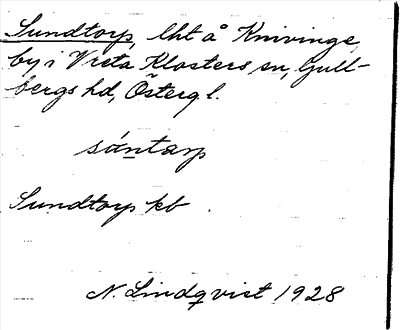 Sundtorp, lht å Knivinge
by i Vreta Klosters sn, Gull-
bergs hd, Österg.l.
sántarp
Sundtorp kb
N. Lindqvist 1928